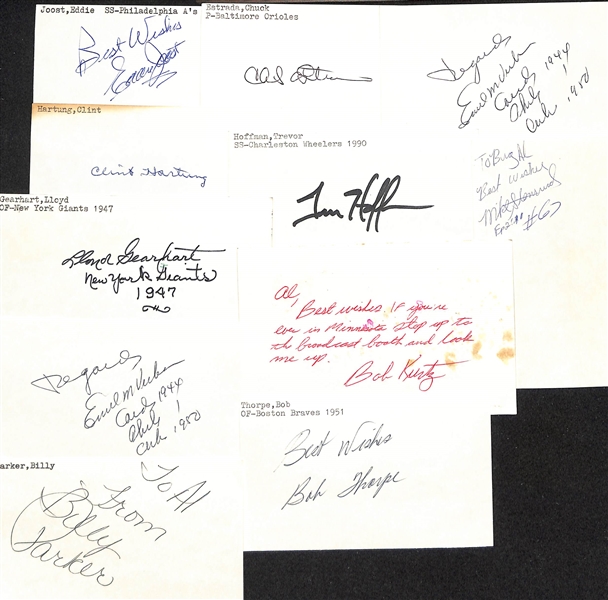 Joost, Eddie SS-Philadelphia A's
Best Wishes
Eddie Joost
Estrada, Chuck
P-Baltimore Orioles
Regards
Emil M Verban
Cards 1944
Phils !
Cubs 1950
Hartung, Clint
Clint Hartung
Hoffman, Trevor
SS-Charleston Wheelers 1990
To Big Al
Best Wishes
#67
Gearhart, Lloyd
OF-New York Giants 1947
Lloyd Gearhart
New York Giants
1947
Al,
Best wishes If you're
ever in Minnesota stop up to
the broadcast booth and look
me up.
Bob Kurtz
Regards
Emil M Verban
Cards 1944
Phils !
Cubs 1950
Thorpe, Bob
OF-Boston Braves 1951
Best Wishes
Bob Thorpe
arker, Billy
To Al
From
Billy
Parker